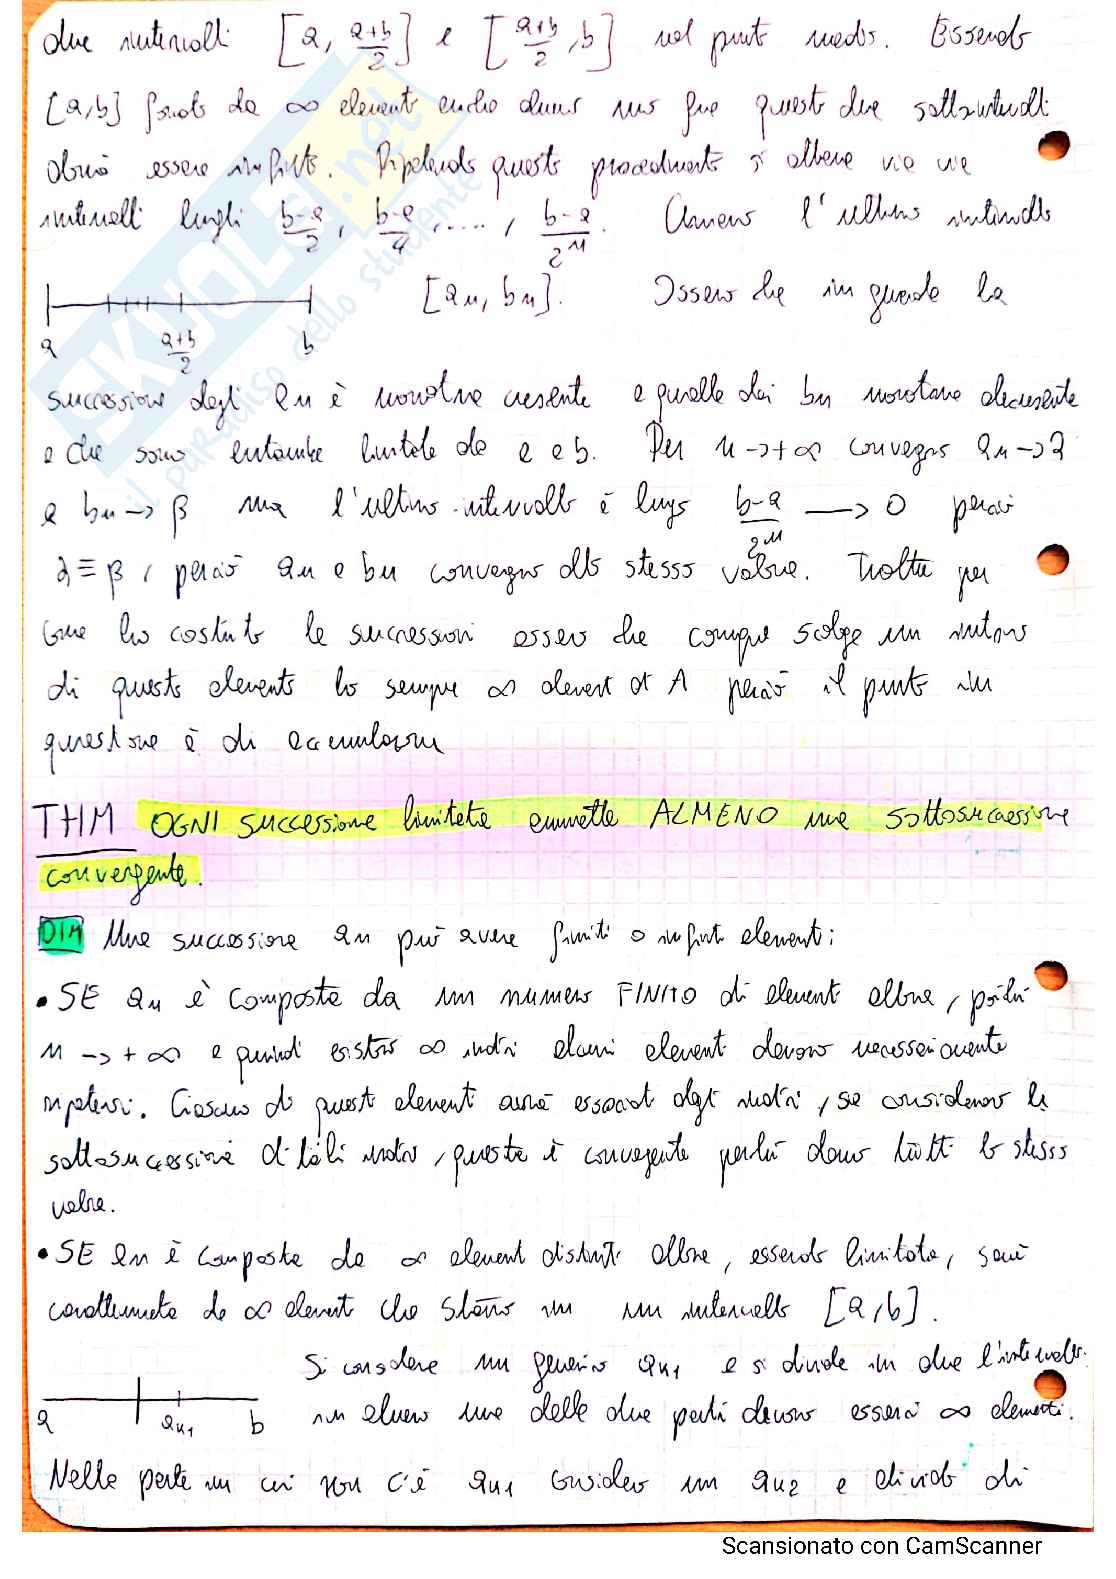 due intervalli [a, a+b/2] e [a+b/2, b] nel punto medio. Essendo
[a,b] formato da ∞ elementi anche almeno uno fra questi due sottointervalli
dovrà essere infinito. Ripetendo questo procedimento si ottiene via via
intervalli lunghi b-a/2, b-a/4, ...., b-a/2^n. Chiamo l'ultimo intervallo
[an, bn]. Osservo che in quando la
a a+b/2 b
successione degli an è monotona crescente e quella dei bn monotona decrescente
e che sono entrambe limitate da a e b. Per n->+∞ convergono an->α
e bn->β ma l'ultimo intervallo è lungo b-a/2^n -> 0 perciò
α≡β, perciò an e bn convergono allo stesso valore. Inoltre per
come ho costruito le successioni osservo che comunque scelga un intorno
di questo elemento ho sempre ∞ elementi di A perciò il punto in
questione è di accumulazione
THM OGNI successione limitata ammette ALMENO una sottosuccessione
convergente.
DIM Una successione an può avere finiti o infiniti elementi:
• SE an è composta da un numero FINITO di elementi allora, poiché
n->+∞ e quindi esistono ∞ indici alcuni elementi devono necessariamente
ripetersi. Ciascuno di questi elementi avrà associati degli indici, se considero la
sottosuccessione di tali indici, questa è convergente perché danno tutti lo stesso
valore.
• SE an è composta da ∞ elementi distinti allora, essendo limitata, sarà
caratterizzata da ∞ elementi che stanno in un intervallo [a,b].
Si considera un generico an1 e si divide in due l'intervallo.
a an1 b
in almeno una delle due parti devono esserci ∞ elementi.
Nella parte in cui non c'è an1 considero un an2 e divido di
Scansionato con CamScanner
SKUOLA.net
il paradiso dello studente